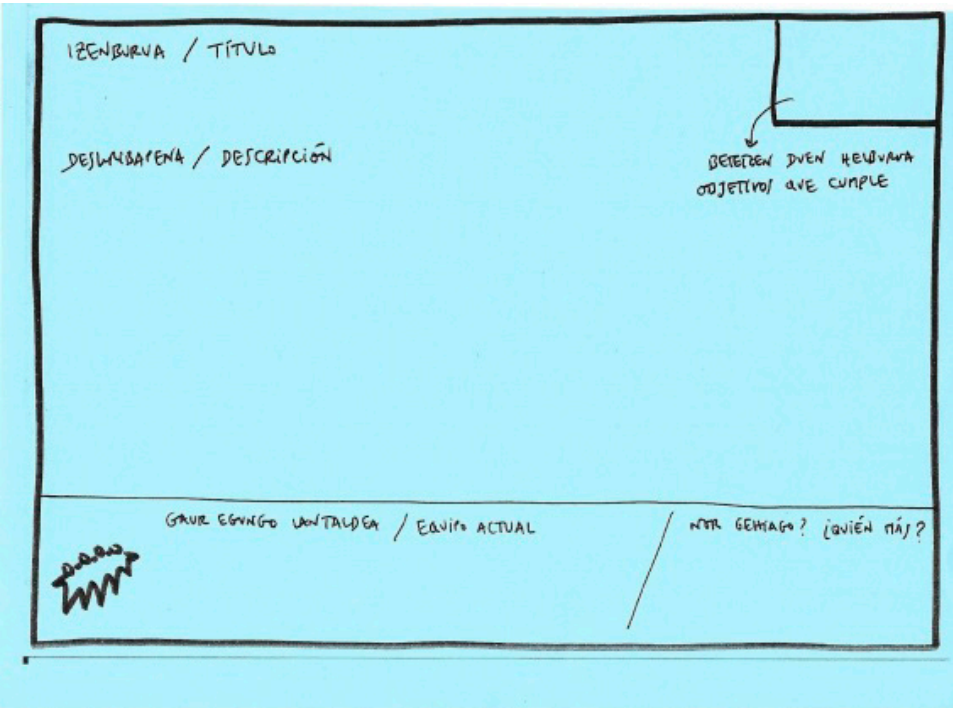 IZENBURUA / TÍTULO
DESKRIBAPENA / DESCRIPCIÓN
BETETZEN DUEN HELBURUA
OBJETIVOS QUE CUMPLE
GAUR EGUNGO LANTALDEA / EQUIPO ACTUAL
NOR GEHIAGO? ¿QUIÉN MÁS?